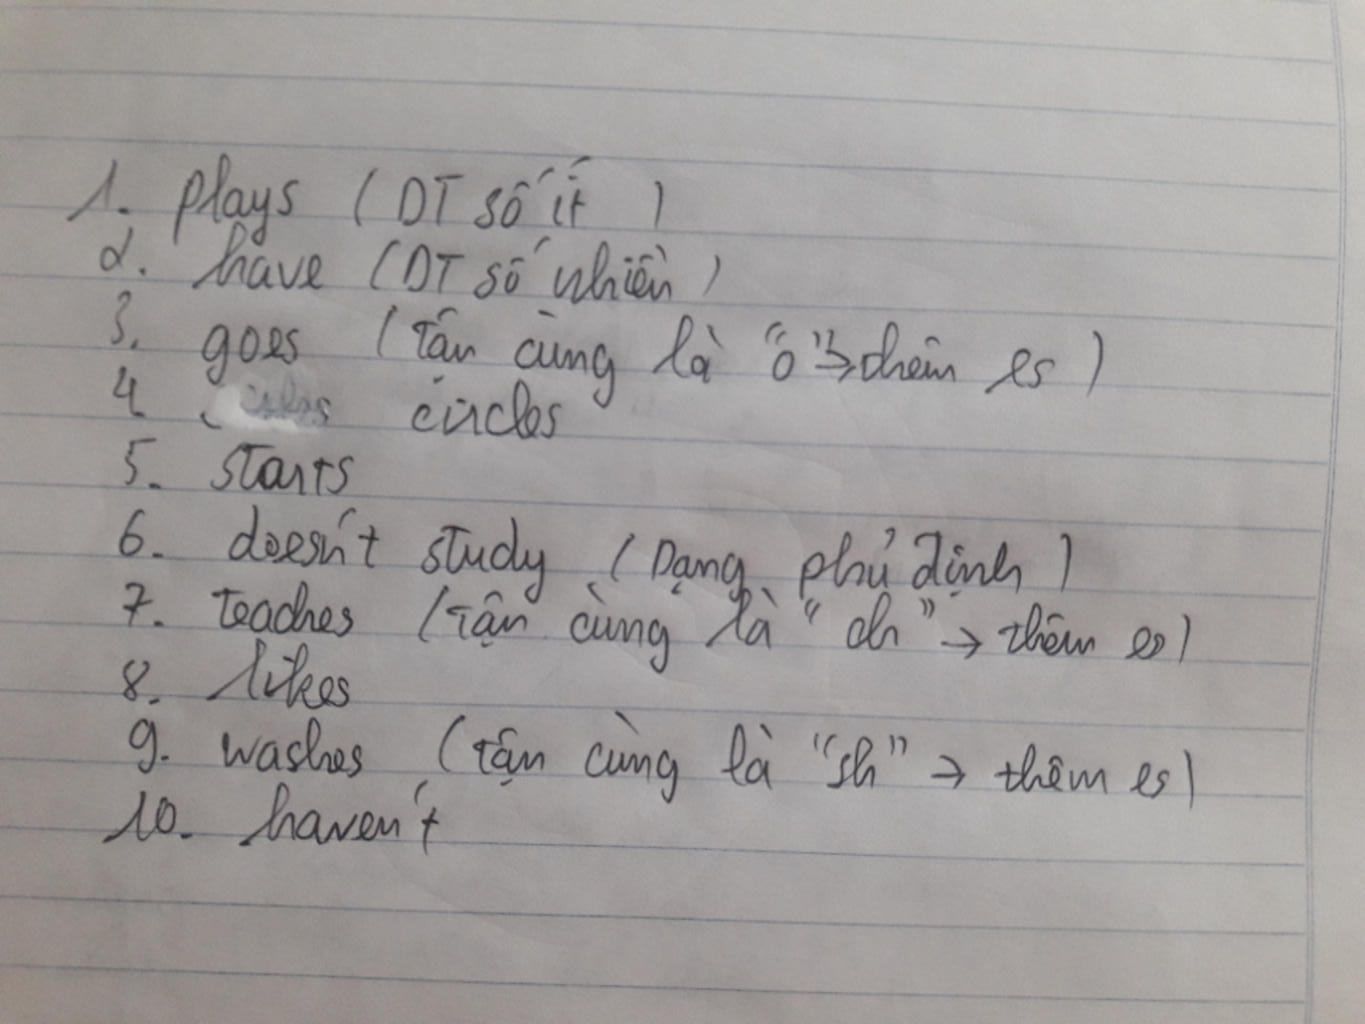 1. plays (DT số ít)
2. have (DT số nhiều)
3. goes (tận cùng là "o" → thêm es)
4 circles
5. starts
6. doesn't study (Dạng phủ định)
7. teaches (tận cùng là "ch" → thêm es)
8. likes
9. washes (tận cùng là "sh" → thêm es)
10. haven't